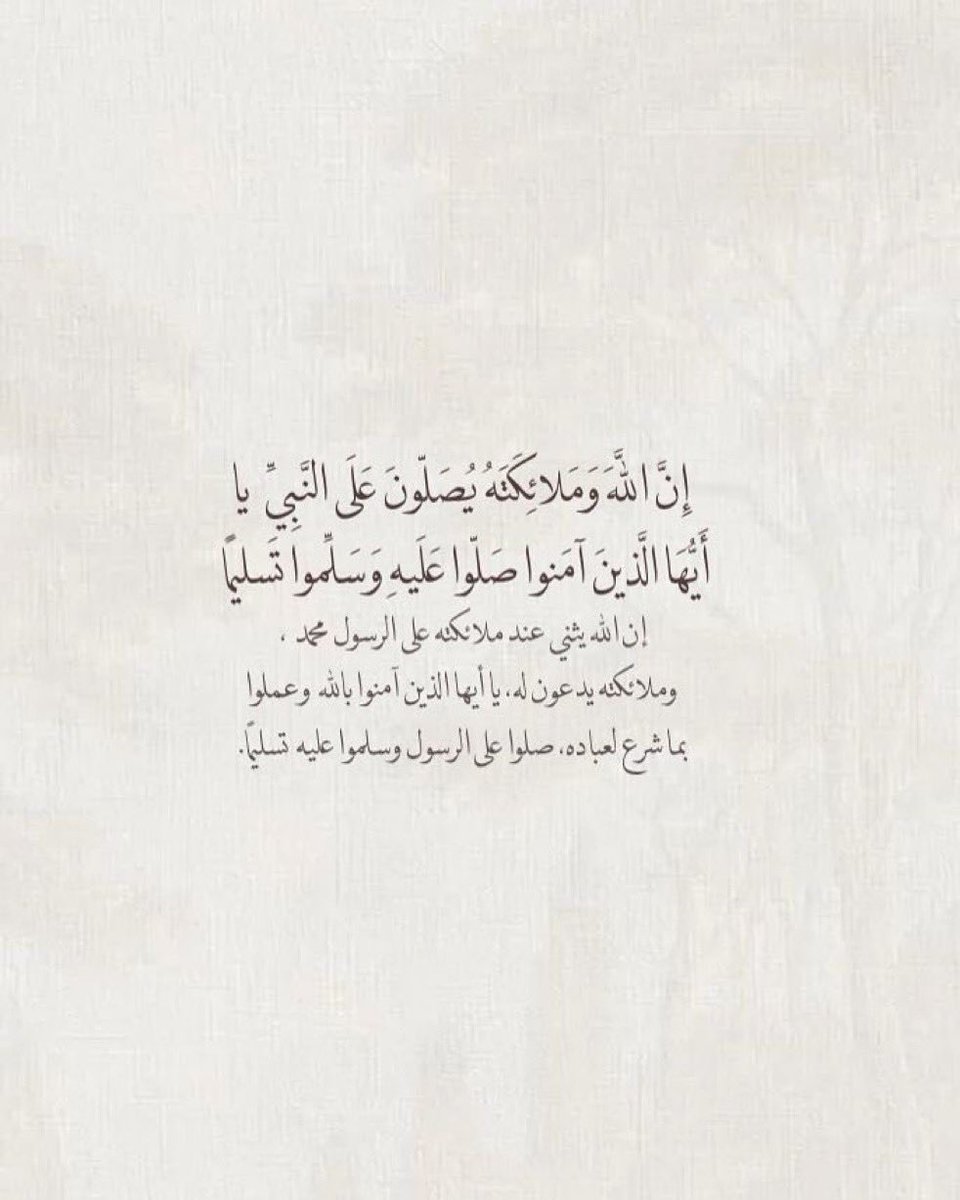 إِنَّ اللَّهَ وَمَلائِكَتَهُ يُصَلّونَ عَلَى النَّبِيِّ يا
أَيُّهَا الَّذينَ آمَنوا صَلّوا عَلَيهِ وَسَلِّموا تَسليمًا
إن الله يثني عند ملائكته على الرسول محمد ،
وملائكته يدعون له، يا أيها الذين آمنوا بالله وعملوا
بما شرع لعباده، صلوا على الرسول وسلموا عليه تسليمًا.